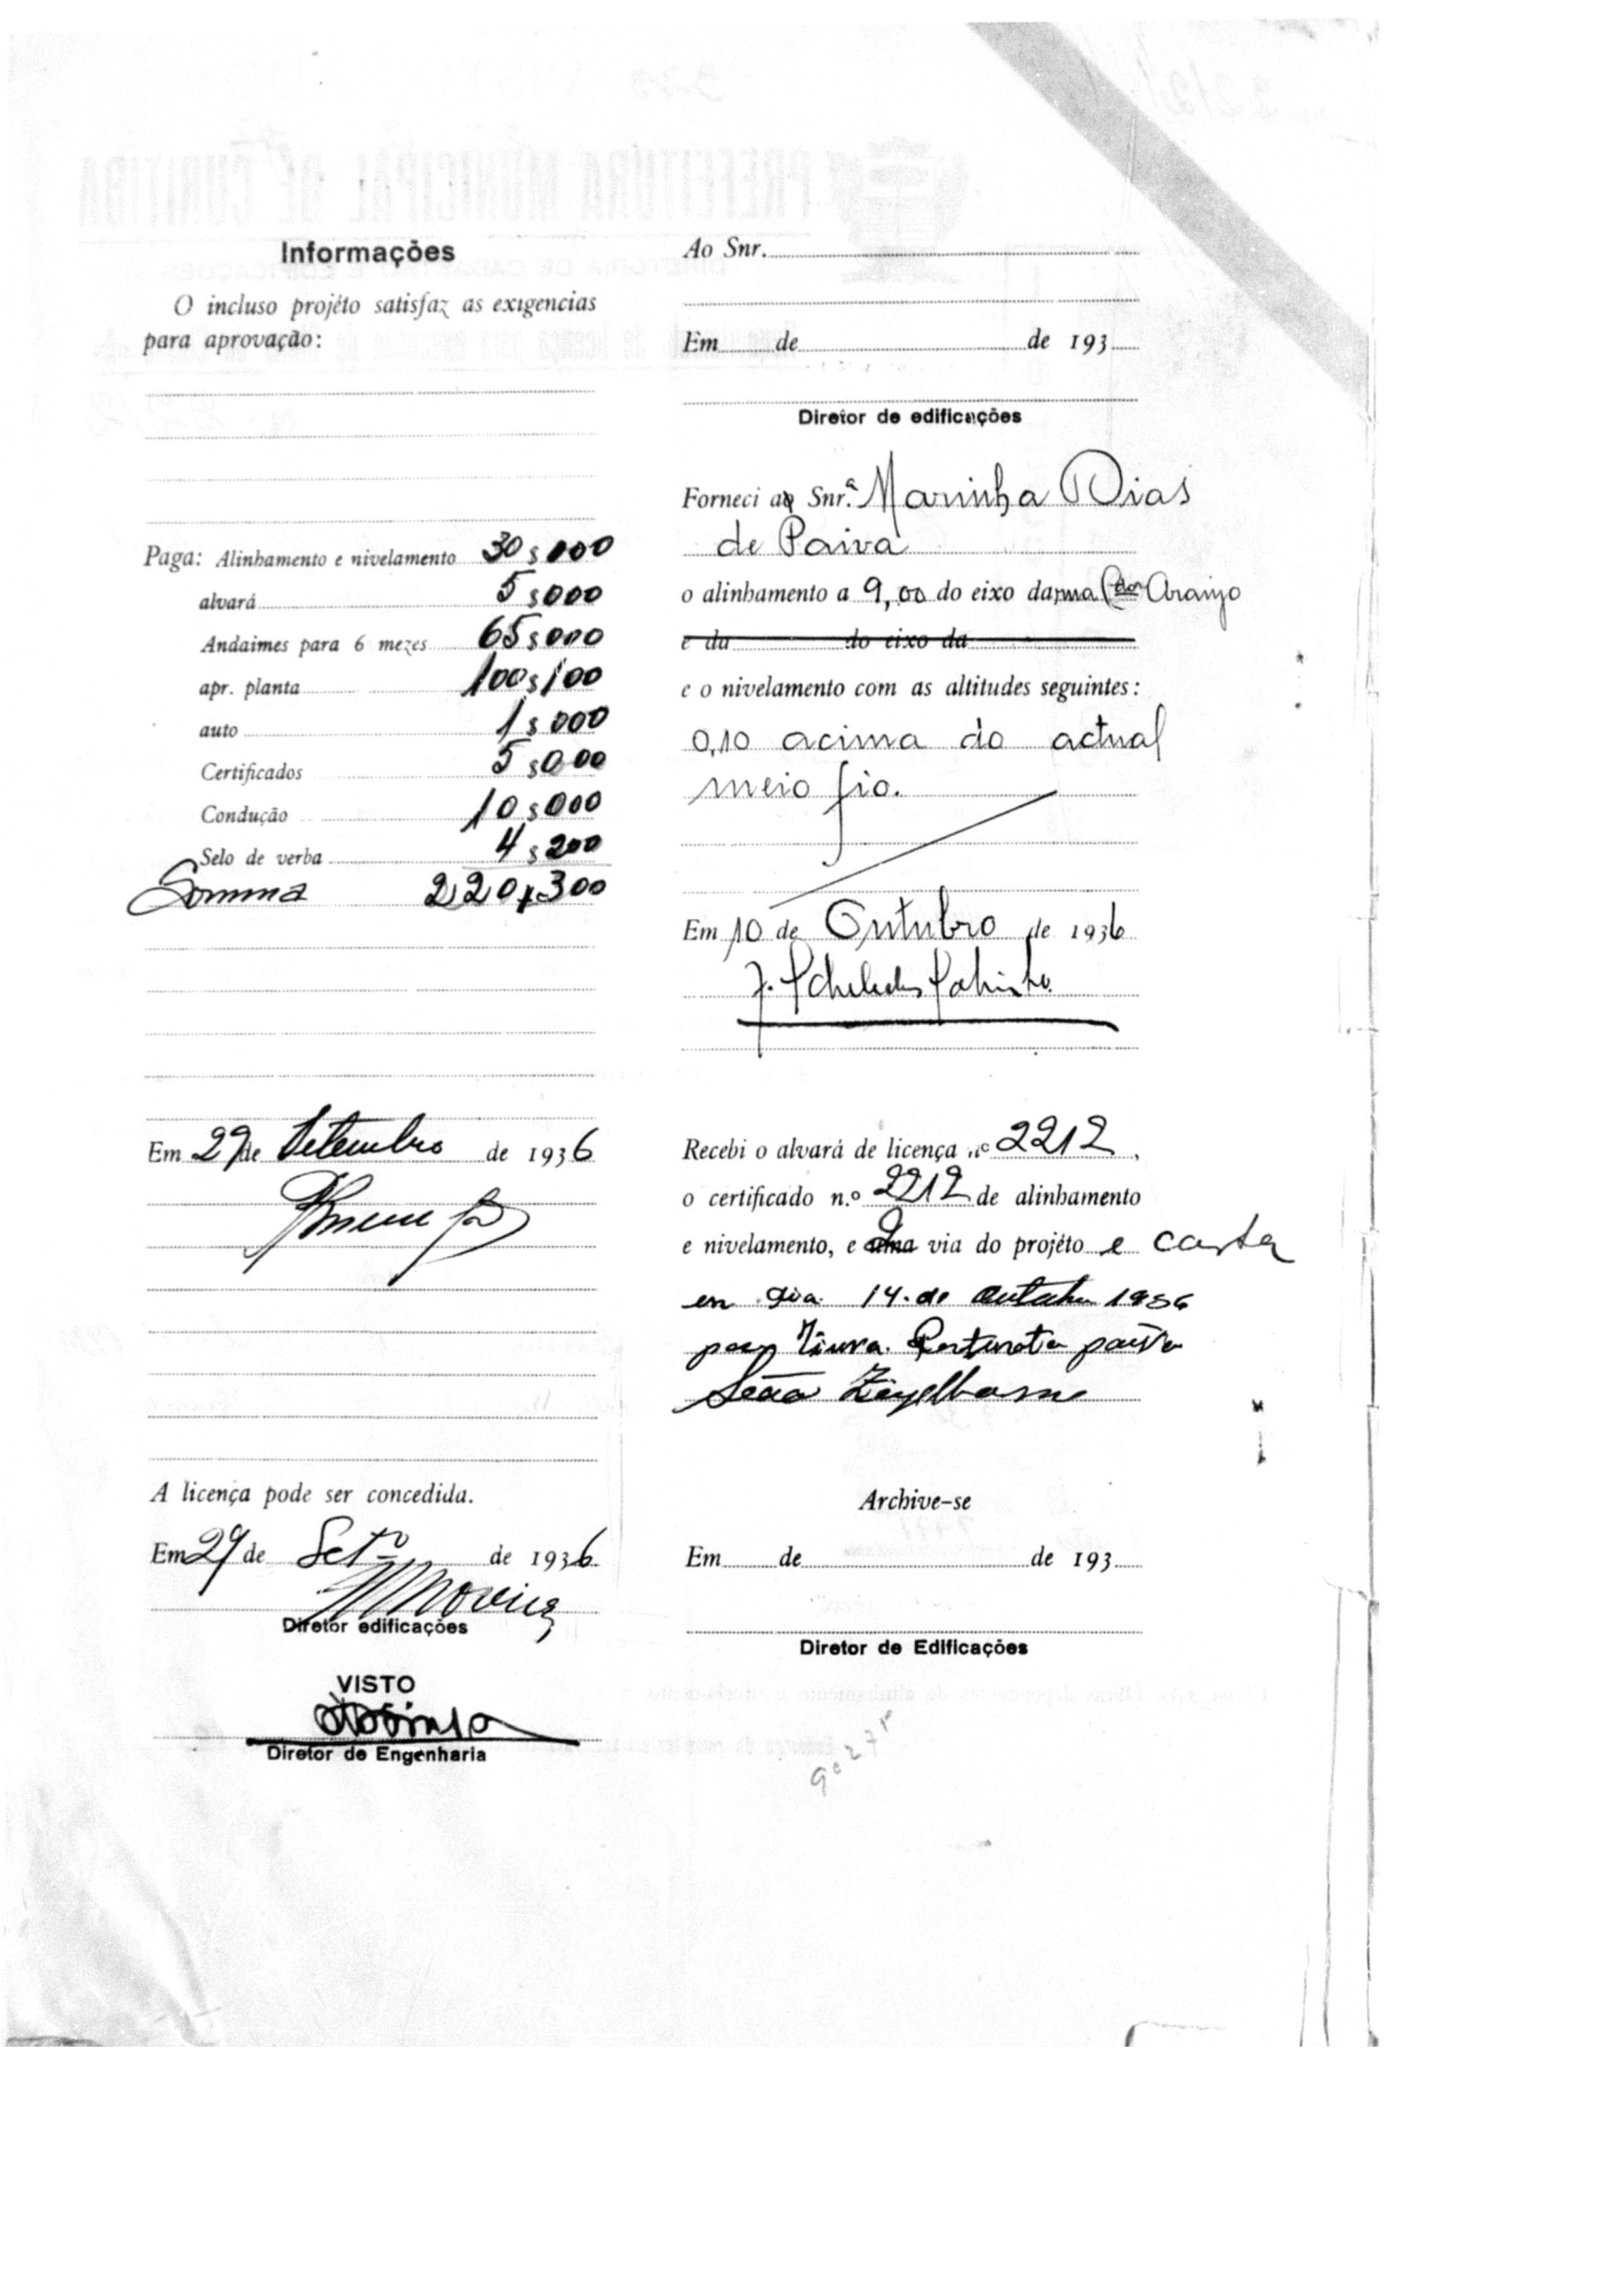 Informações
O incluso projéto satisfaz as exigencias
para aprovação:
Paga: Alinhamento e nivelamento 30$000
alvará 5$000
Andaimes para 6 mezes 65$000
apr. planta 100$100
auto 1$000
Certificados 5$000
Condução 10$000
Selo de verba 4$200
Somma 220$300
Em 29 de Setembro de 1936
A licença pode ser concedida.
Em 29 de Setº de 1936
Diretor edificações
VISTO
Diretor de Engenharia
Ao Snr.
Em de de 193
Diretor de edificações
Forneci a Snrª Marinha Dias
de Paiva
o alinhamento a 9,00 do eixo da rua Cdor Araujo
e da do eixo da
e o nivelamento com as altitudes seguintes:
0,10 acima do actual
meio fio.
Em 10 de Outubro de 1936
Recebi o alvará de licença nº 2212,
o certificado n.º 2212 de alinhamento
e nivelamento, e uma via do projéto e carta
en dia 14 de Outubro 1936
Archive-se
Em de de 193
Diretor de Edificações
PREFEITURA MUNICIPAL DE CURITIBA
DIRETORIA DE CADASTRO E EDIFICAÇÕES